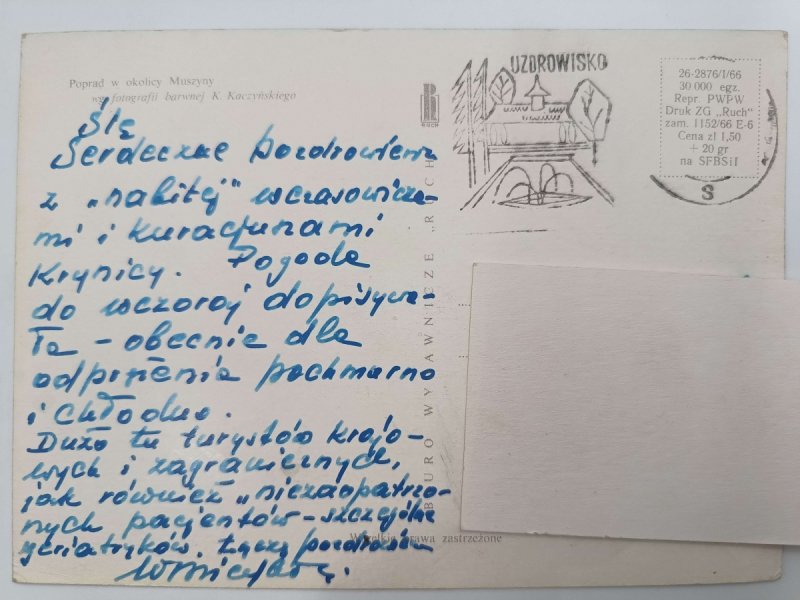 Poprad w okolicy Muszyny
wg fotografii barwnej K. Kaczyńskiego
RUCH
UZDROWISKO
26-2876/I/66
30 000 egz.
Repr. PWPW
Druk ZG „Ruch"
zam. 1152/66 E-6
Cena zł 1,50
+ 20 gr
na SFBSiI
S
Ślę
Serdeczne pozdrowienia
z „nabitej" wczasowicza-
mi i kuracjuszami
Krynicy. Pogoda
do wczoraj dopisywa-
ła - obecnie dla
odprężenia pochmurno
i chłodno.
Dużo tu turystów krajo-
wych i zagranicznych,
jak również „niezaopatrzo-
nych pacjentów - szczególnie
geriatryków. Łączę pozdrowienia
BIURO WYDAWNICZE „RUCH
Wszelkie prawa zastrzeżone